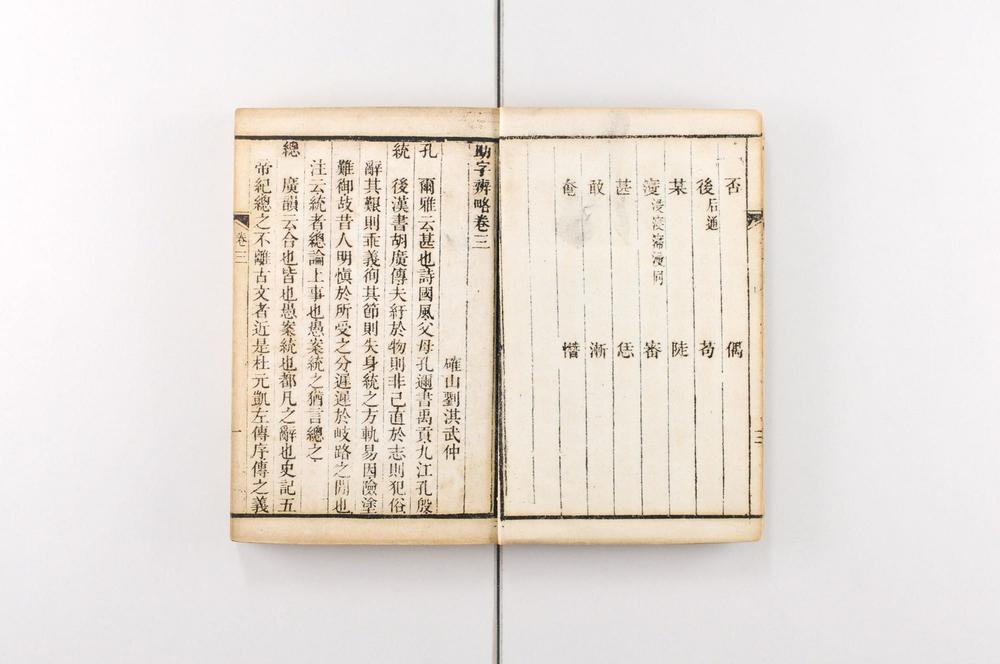 否 偶
後 后通 苟
某 陡
審
甚 恁
敢 漸
奄 憯
助字辨略卷三
確山劉淇武仲
孔 爾雅云甚也詩國風父母孔邇書禹貢九江孔殷
統 後漢書胡廣傳夫紆於物則非己直於志則犯俗
辭其艱則乖義徇其節則失身統之方軌易因險塗
難御故昔人明愼於所受之分遲遲於岐路之閒也
注云統者總論上事也愚案統之猶言總之
總 廣韻云合也皆也愚案統也都凡之辭也史記五
帝紀總之不離古文者近是杜元凱左傳序傳之義
卷三
一